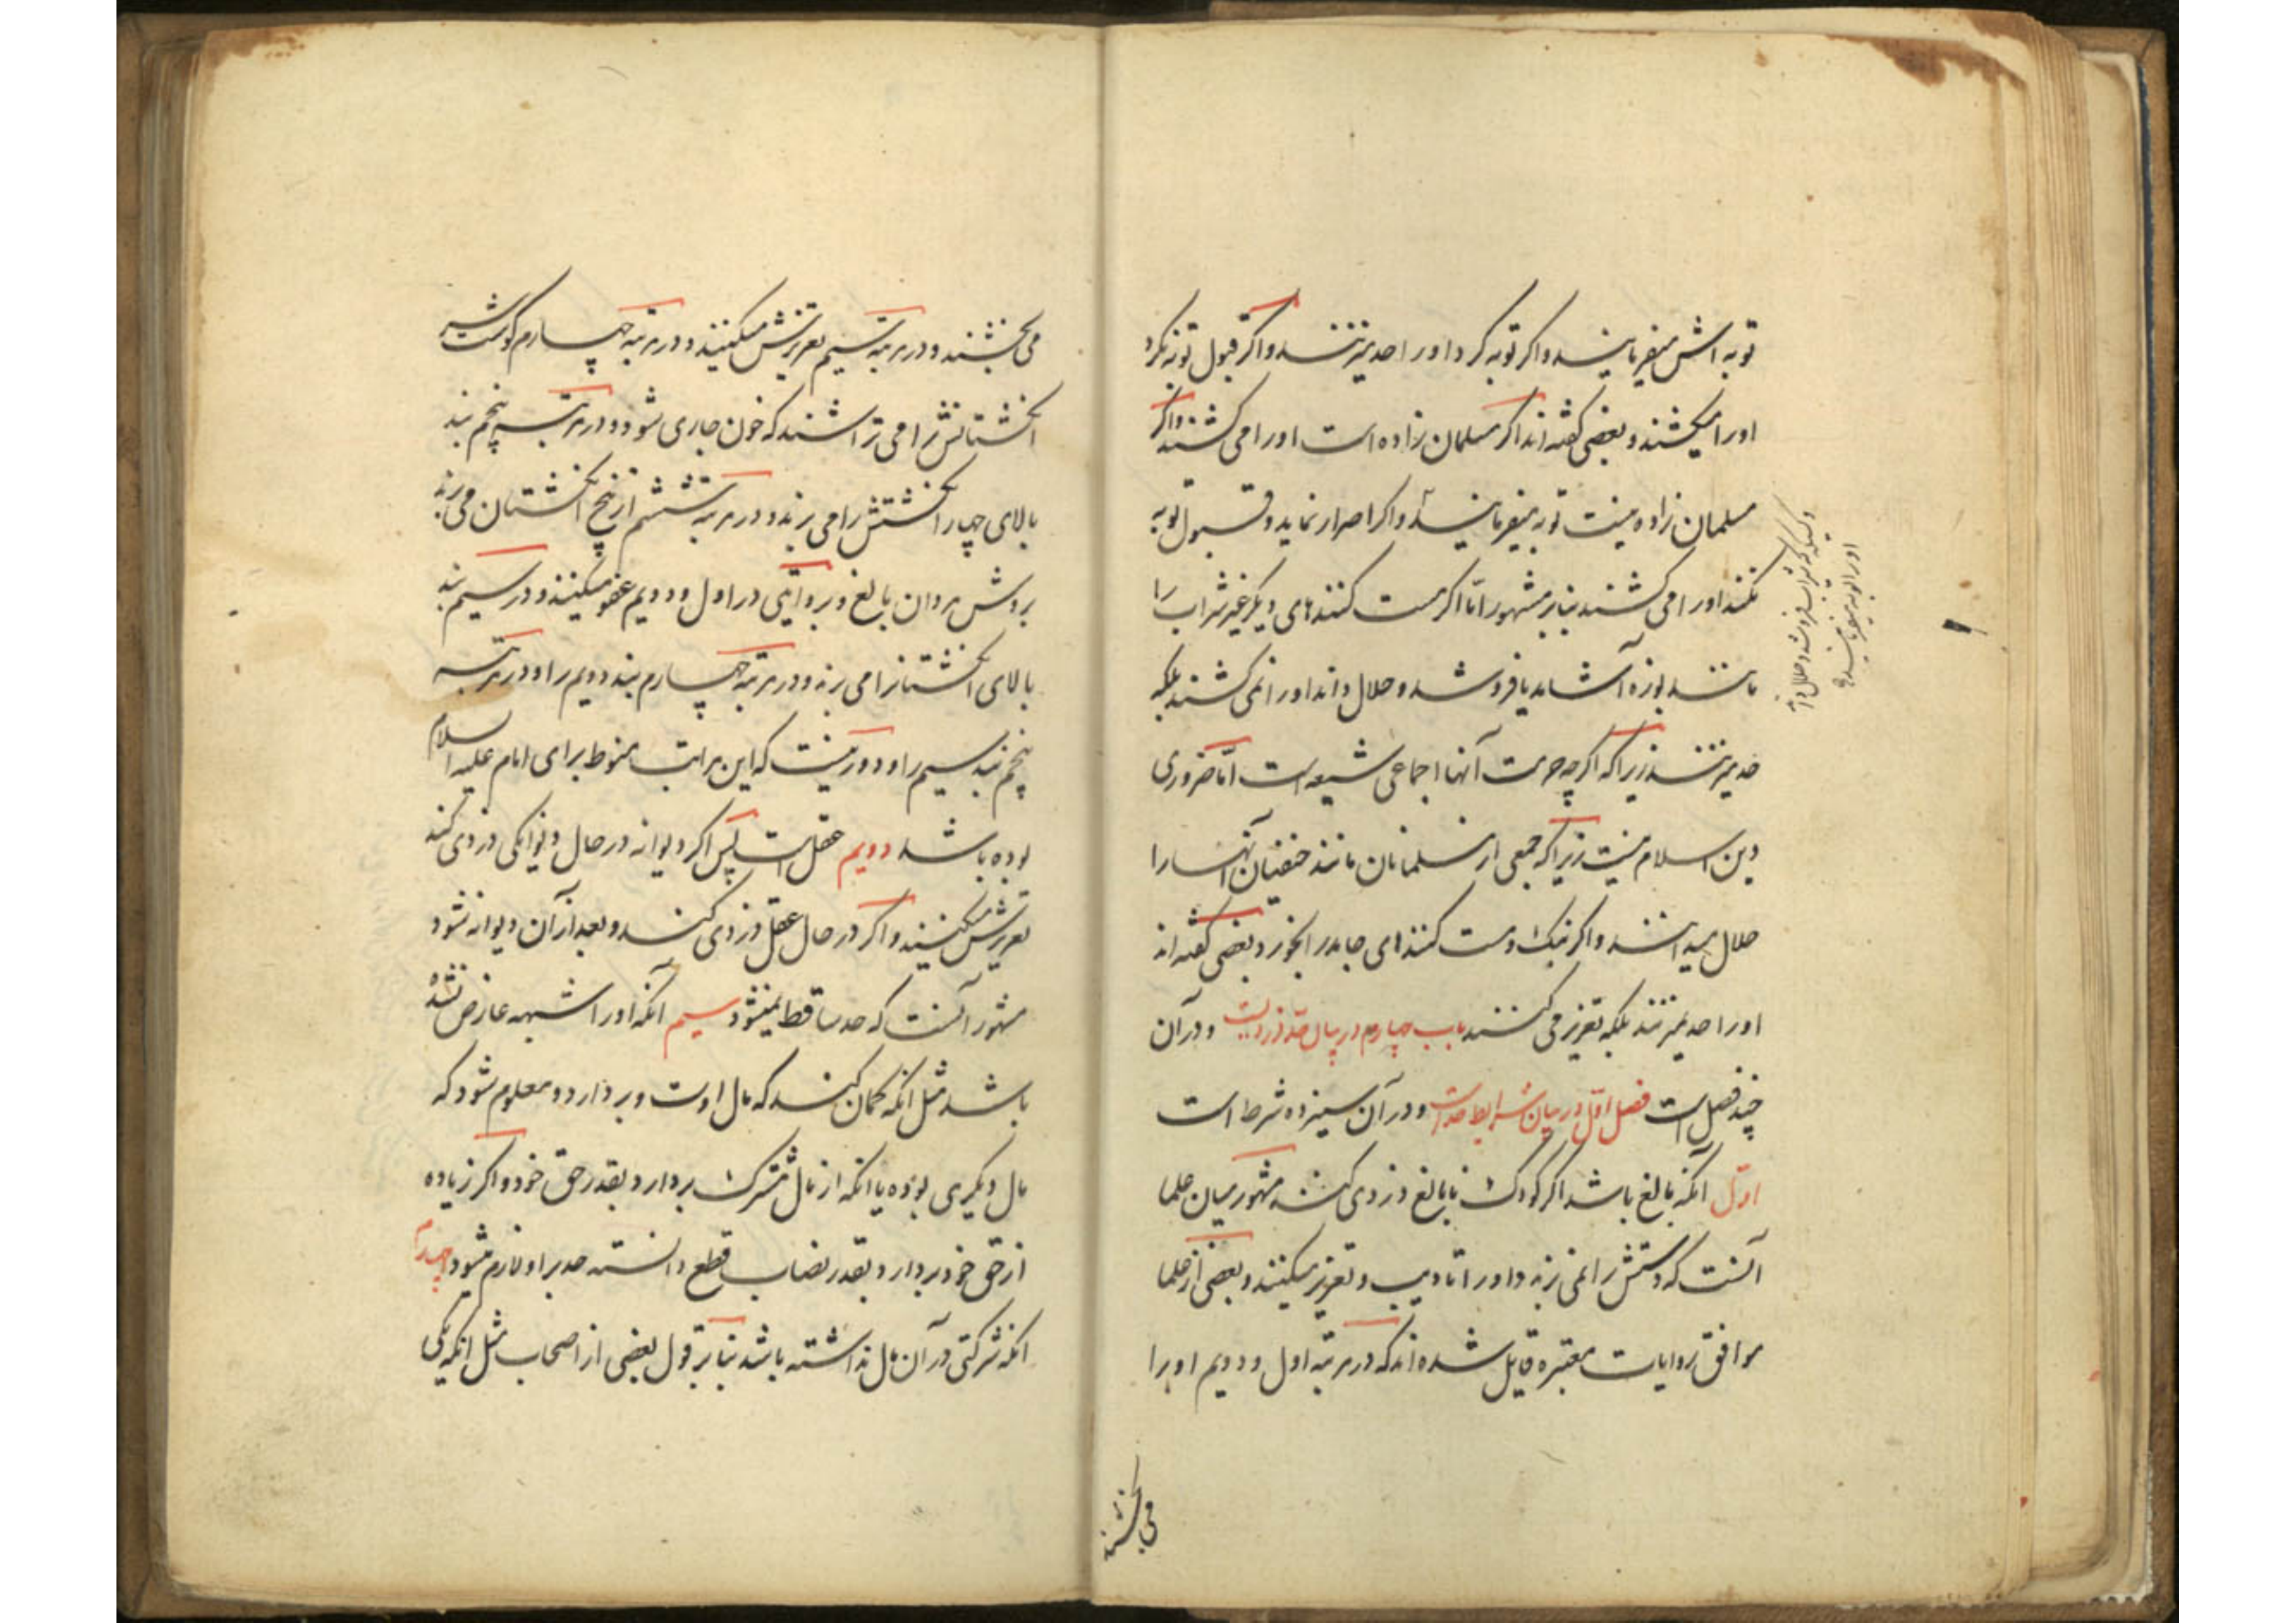 توبه اش میفرمایند و اگر توبه کرد او را حد میزنند و اگر قبول توبه نکرد
او را میکشند و بعضی گفته اند اگر مسلمان زاده است او را می کشند و اگر
مسلمان زاده نیست توبه میفرمایند و اگر اصرار نماید و قبول توبه
نکند او را می کشند بنابر مشهور اما اگر مست کننده‌ای دیگر غیر شراب را
مانند بوزه آشامد یا فروشد و حلال داند او را نمی کشند بلکه
حد میزنند زیرا که اگرچه حرمت آنها اجماعی شیعه است اما ضروری
دین اسلام نیست زیرا که جمعی از مسلمانان مانند حنفیان آنها را
حلال میدانند و اگر بنک و مست کنند‌های جامد را بخورد بعضی گفته اند
او را حد نمیزنند بلکه تعزیر می کنند باب چهارم در بیان حد دزدیست و در آن
چند فصل است فصل اول در بیان شرایط حد است و در آن سیزده شرط است
اول آنکه بالغ باشد اگر کودک نابالغ دزدی کند مشهور میان علما
آنست که دستش را نمی برند و او را تادیب و تعزیر میکنند و بعضی از علما
موافق روایات معتبره قایل شده اند که در مرتبه اول و دویم او را
می بخشند
و کسیکه شراب فروشد و حلال داند
او را توبه میفرمایند
می بخشند و در مرتبه سیم تعزیرش میکنند و در مرتبه چهارم گوشت سر
انگشتانش را می تراشند که خون جاری شود و در مرتبه پنجم بند
بالای چهار انگشتش را می برند و در مرتبه ششم از بیخ انگشتان می برند
بروش مردان بالغ و بروایتی در اول و دویم عفو میکنند و در سیم بند
بالای انگشتانرا می برند و در مرتبه چهارم بند دویم را و در مرتبه
پنجم بند سیم را و دور نیست که این مراتب منوط برای امام علیه السلام
بوده باشد دویم عقل است پس اگر دیوانه در حال دیوانکی دزدی کند
تعزیرش میکنند و اگر در حال عقل دزدی کند و بعد از آن دیوانه شود
مشهور آنست که حد ساقط نمیشود سیم آنکه او را شبهه عارض نشده
باشد مثل آنکه گمان کند که مال اوست و بردارد و معلوم شود که
مال دیگری بوده یا آنکه از مال مشترک بردارد بقدر حق خود و اگر زیاده
از حق خود بردارد بقدر نصاب قطع دانسته حد بر او لازم میشود چهارم
آنکه شرکتی در آن مال نداشته باشد بنابر قول بعضی از اصحاب مثل آنکه یکی